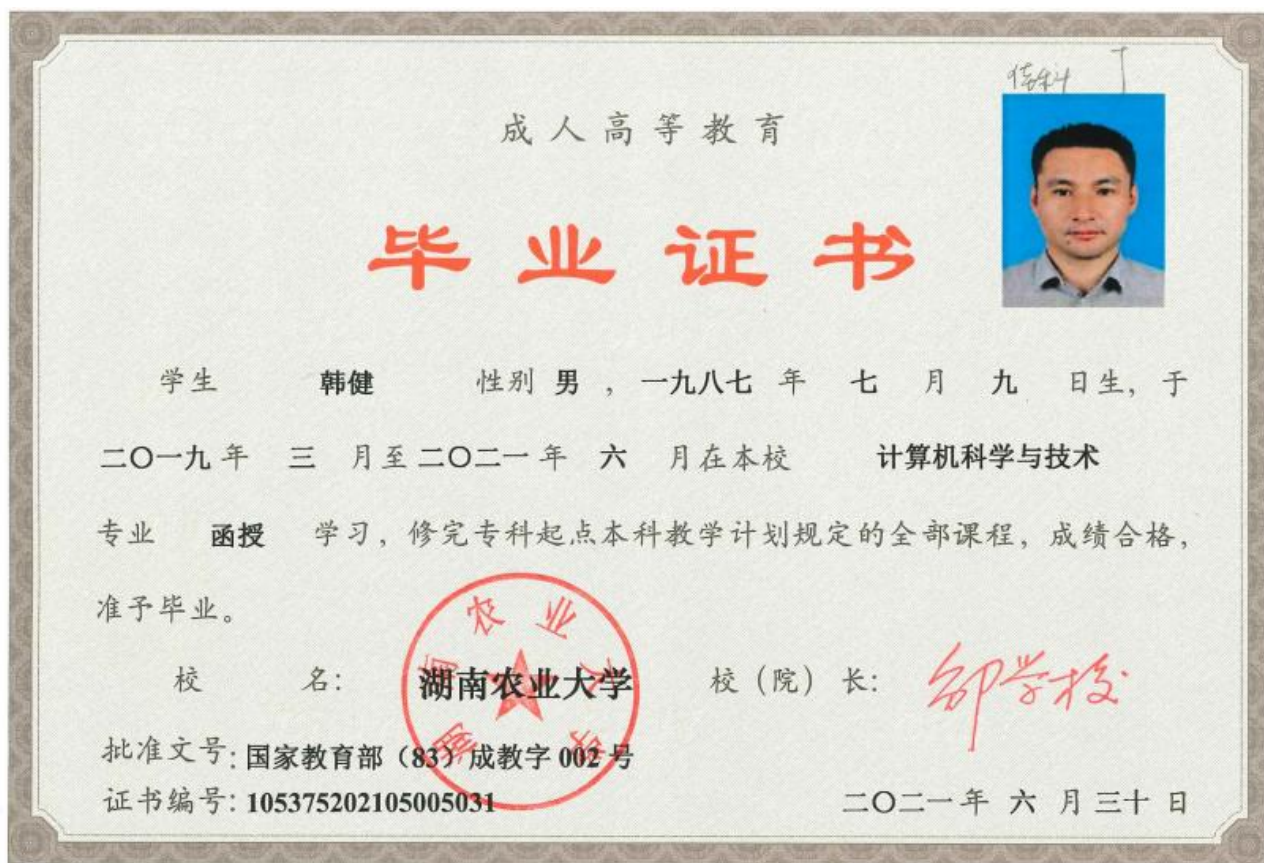 成人高等教育
毕业证书
学生 韩健 性别 男 ，一九八七 年 七 月 九 日生，于
二〇一九 年 三 月至 二〇二一 年 六 月在本校 计算机科学与技术
专业 函授 学习，修完专科起点本科教学计划规定的全部课程，成绩合格，
准予毕业。
湖南农业大学
校 名： 湖南农业大学 校（院）长： 邹学校
批准文号：国家教育部（83）成教字 002 号
证书编号：105375202105005031 二〇二一 年 六 月 三十 日